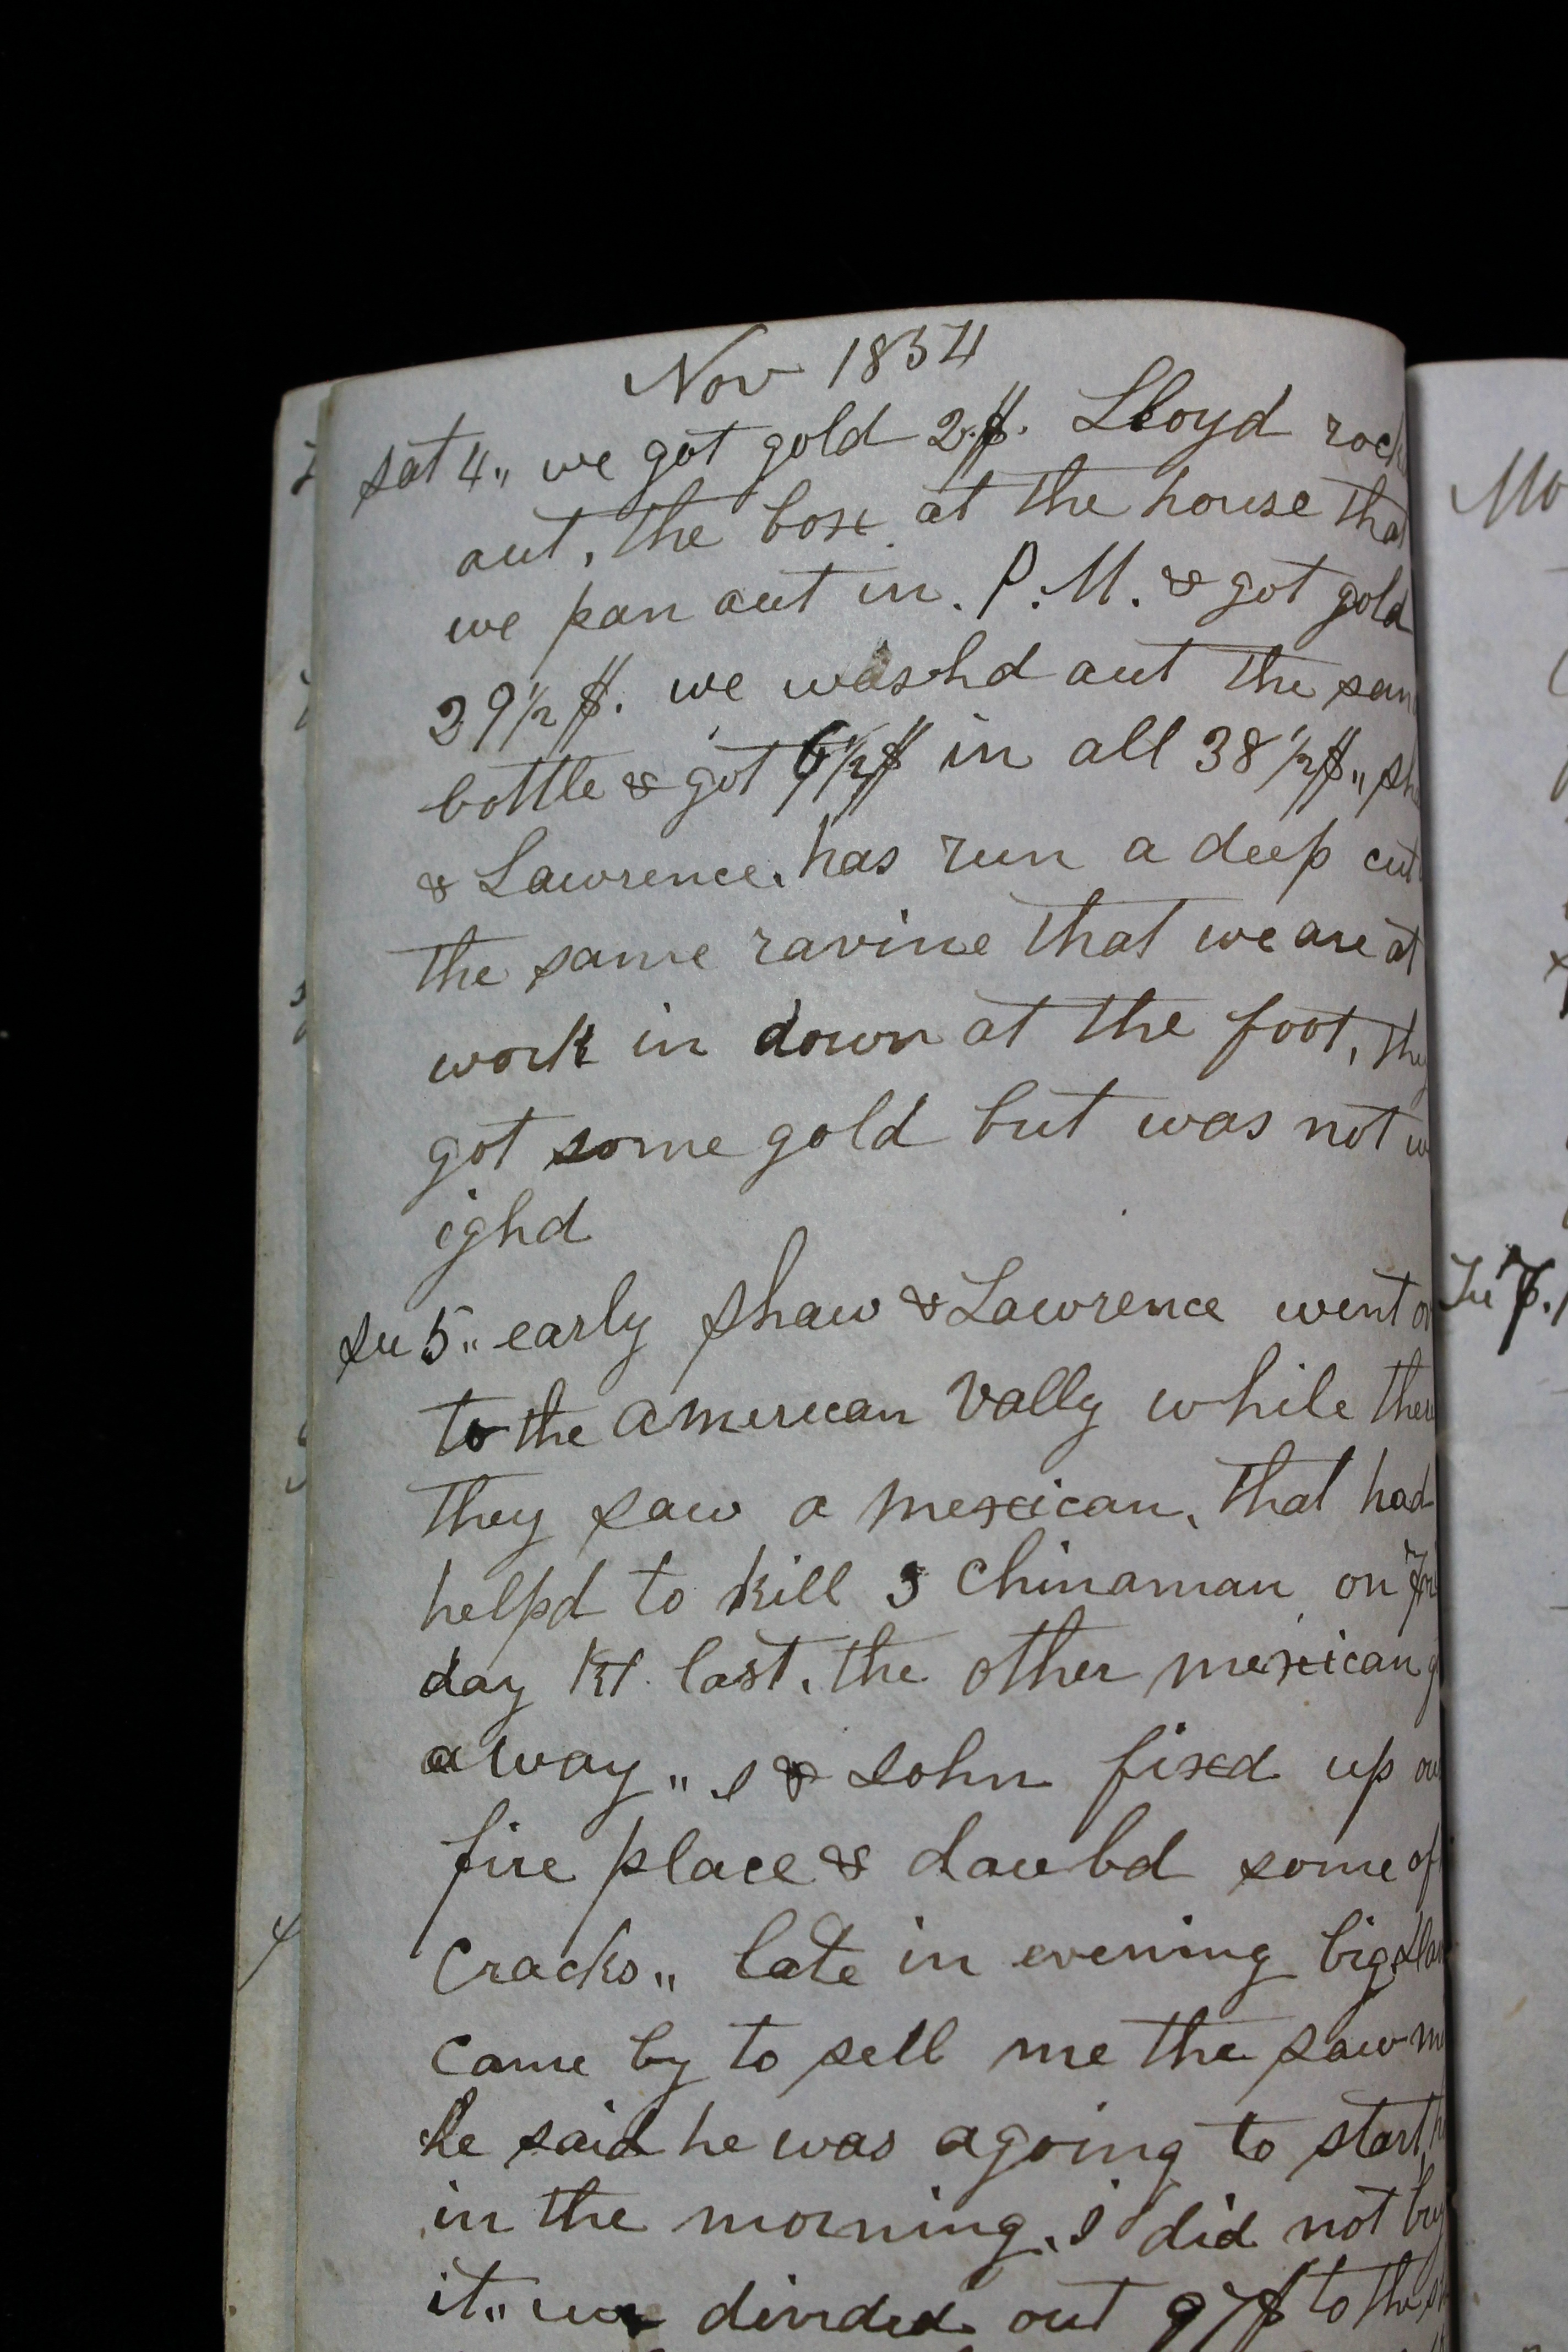 Nov 1854
sat 4,, we got gold 2.$. Lloyd rock
out, the box at the house that
we pan out in. P.M. & got gold
29½ $. we washd out the san
bottle & got 6½$ in all 38½$,, sh
& Lawrence, has run a deep cut
the same ravine that we are at
work in down at the foot, they
got some gold but was not w
ighd
su 5,, early shaw & Lawrence went o
to the american vally while there
they saw a mexican, that had
helpd to kill 3 chinaman on fri
day last, the other mexican g
away,, I & John fixd up ou
fire place & daubd some of
cracks,, late in evening big
came by to sell me the saw m
he said he was agoing to start,
in the morning, I did not buy
it,, we divided out 97$ to the s
Mo
Tu 7.